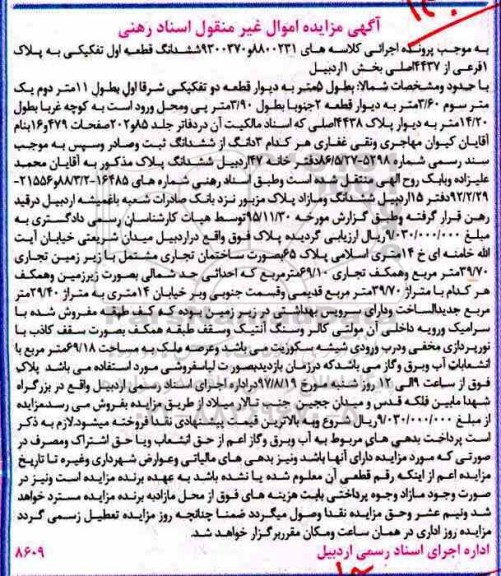 آگهی مزایده اموال غیر منقول اسناد رهنی
به موجب پرونده اجرائی کلاسه های ۸۸۰۰۲۳۱و۹۳۰۰۳۷۰ششدانگ قطعه اول تفکیکی به پلاک
۱فرعی از ۴۴۳۷اصلی بخش ۱اردبیل
با حدود ومشخصات شمالا: بطول ۵متر به دیوار قطعه دو تفکیکی شرقا اول بطول ۱۱متر دوم یک
متر سوم ۳/۶۰متر به دیوار قطعه ۲جنوبا بطول ۳/۹۰متر پی ومحل ورود است به کوچه غربا بطول
۱۴/۲۰متر به دیوار پلاک ۴۴۳۸اصلی که اسناد مالکیت آن دردفاتر جلد ۸۵و۲۰۲صفحات ۴۷۹و۱۶بنام
آقایان کیوان مهاجری ونقی غفاری هر کدام ۳دانگ از ششدانگ ثبت وصادر وسپس به موجب
سند رسمی شماره ۵۲۹۸-۸۶/۵/۲۷دفتر خانه ۴۷اردبیل ششدانگ پلاک مذکور به آقایان محمد
علیزاده وبابک روح الهی منتقل شده است وطبق اسناد رهنی شماره های ۱۶۴۸۵-۸۸/۳/۲و۲۱۵۵۶-
۹۲/۲/۲۹دفتر ۱۵اردبیل ششدانگ ومازاد پلاک مزبور نزد بانک صادرات شعبه باغمیشه اردبیل درقید
رهن قرار گرفته وطبق گزارش مورخه ۹۵/۱۱/۳۰توسط هیات کارشناسان رسمی دادگستری به
مبلغ ۹/۰۳۰/۰۰۰/۰۰۰ریال ارزیابی گردیده پلاک فوق واقع دراردبیل میدان شریعتی خیابان آیت
الله خامنه ای خ ۱۴متری اسلامی پلاک ۶۵بصورت ساختمان تجاری مشتمل با زیر زمین تجاری
۳۹/۷۰متر مربع وهمکف تجاری ۶۹/۱۰مترمربع که احداثی حد شمالی بصورت زیرزمین وهمکف
هر کدام با متراژ ۳۹/۷۰متر مربع قدیمی وقسمت جنوبی وبر خیابان ۱۴متری به متراژ ۲۹/۴۰متر
مربع جدیدالساخت ودارای سرویس بهداشتی در زیر زمین بوده که کف طبقه مفروش شده با
سرامیک ورویه داخلی آن مولتی کالر وسنگ آنتیک وسقف طبقه همکف بصورت سقف کاذب با
نورپردازی مخفی ودرب ورودی شیشه سکوریت می باشد وعرصه ملک به مساحت ۶۹/۱۸متر مربع با
انشعابات آب وبرق وگاز می باشدکه درزمان بازدیدبصورت لباسفروشی مورد استفاده می باشد پلاک
فوق از ساعت ۹الی ۱۲ روز شنبه مورخ ۹۷/۸/۱۹دراداره اجرای اسناد رسمی اردبیل واقع در بزرگراه
شهدا مابین فلکه قدس و میدان ججین جنب تالار میلاد از طریق مزایده بفروش می رسدمزایده
از مبلغ ۹/۰۳۰/۰۰۰/۰۰۰ریال شروع وبه بالاترین قیمت پیشنهادی نقدا فروخته میشود.لازم به ذکر
است پرداخت بدهی های مربوط به آب وبرق وگاز اعم از حق انشعاب ویا حق اشتراک ومصرف در
صورتی که مورد مزایده دارای آنها باشد ونیز بدهی های مالیاتی وعوارض شهرداری وغیره تا تاریخ
مزایده اعم از اینکه رقم قطعی آن معلوم شده یا نشده باشد به عهده برنده مزایده است ونیز در
صورت وجود مازاد وجوه پرداختی بابت هزینه های فوق از محل مازادبه برنده مزایده مسترد خواهد
شد ونیم عشر وحق مزایده نقدا وصول میگردد ضمنا چنانچه روز مزایده تعطیل رسمی گردد
مزایده روز اداری در همان ساعت ومکان مقرربرگزار خواهد شد.
اداره اجرای اسناد رسمی اردبیل
۸۶۰۹